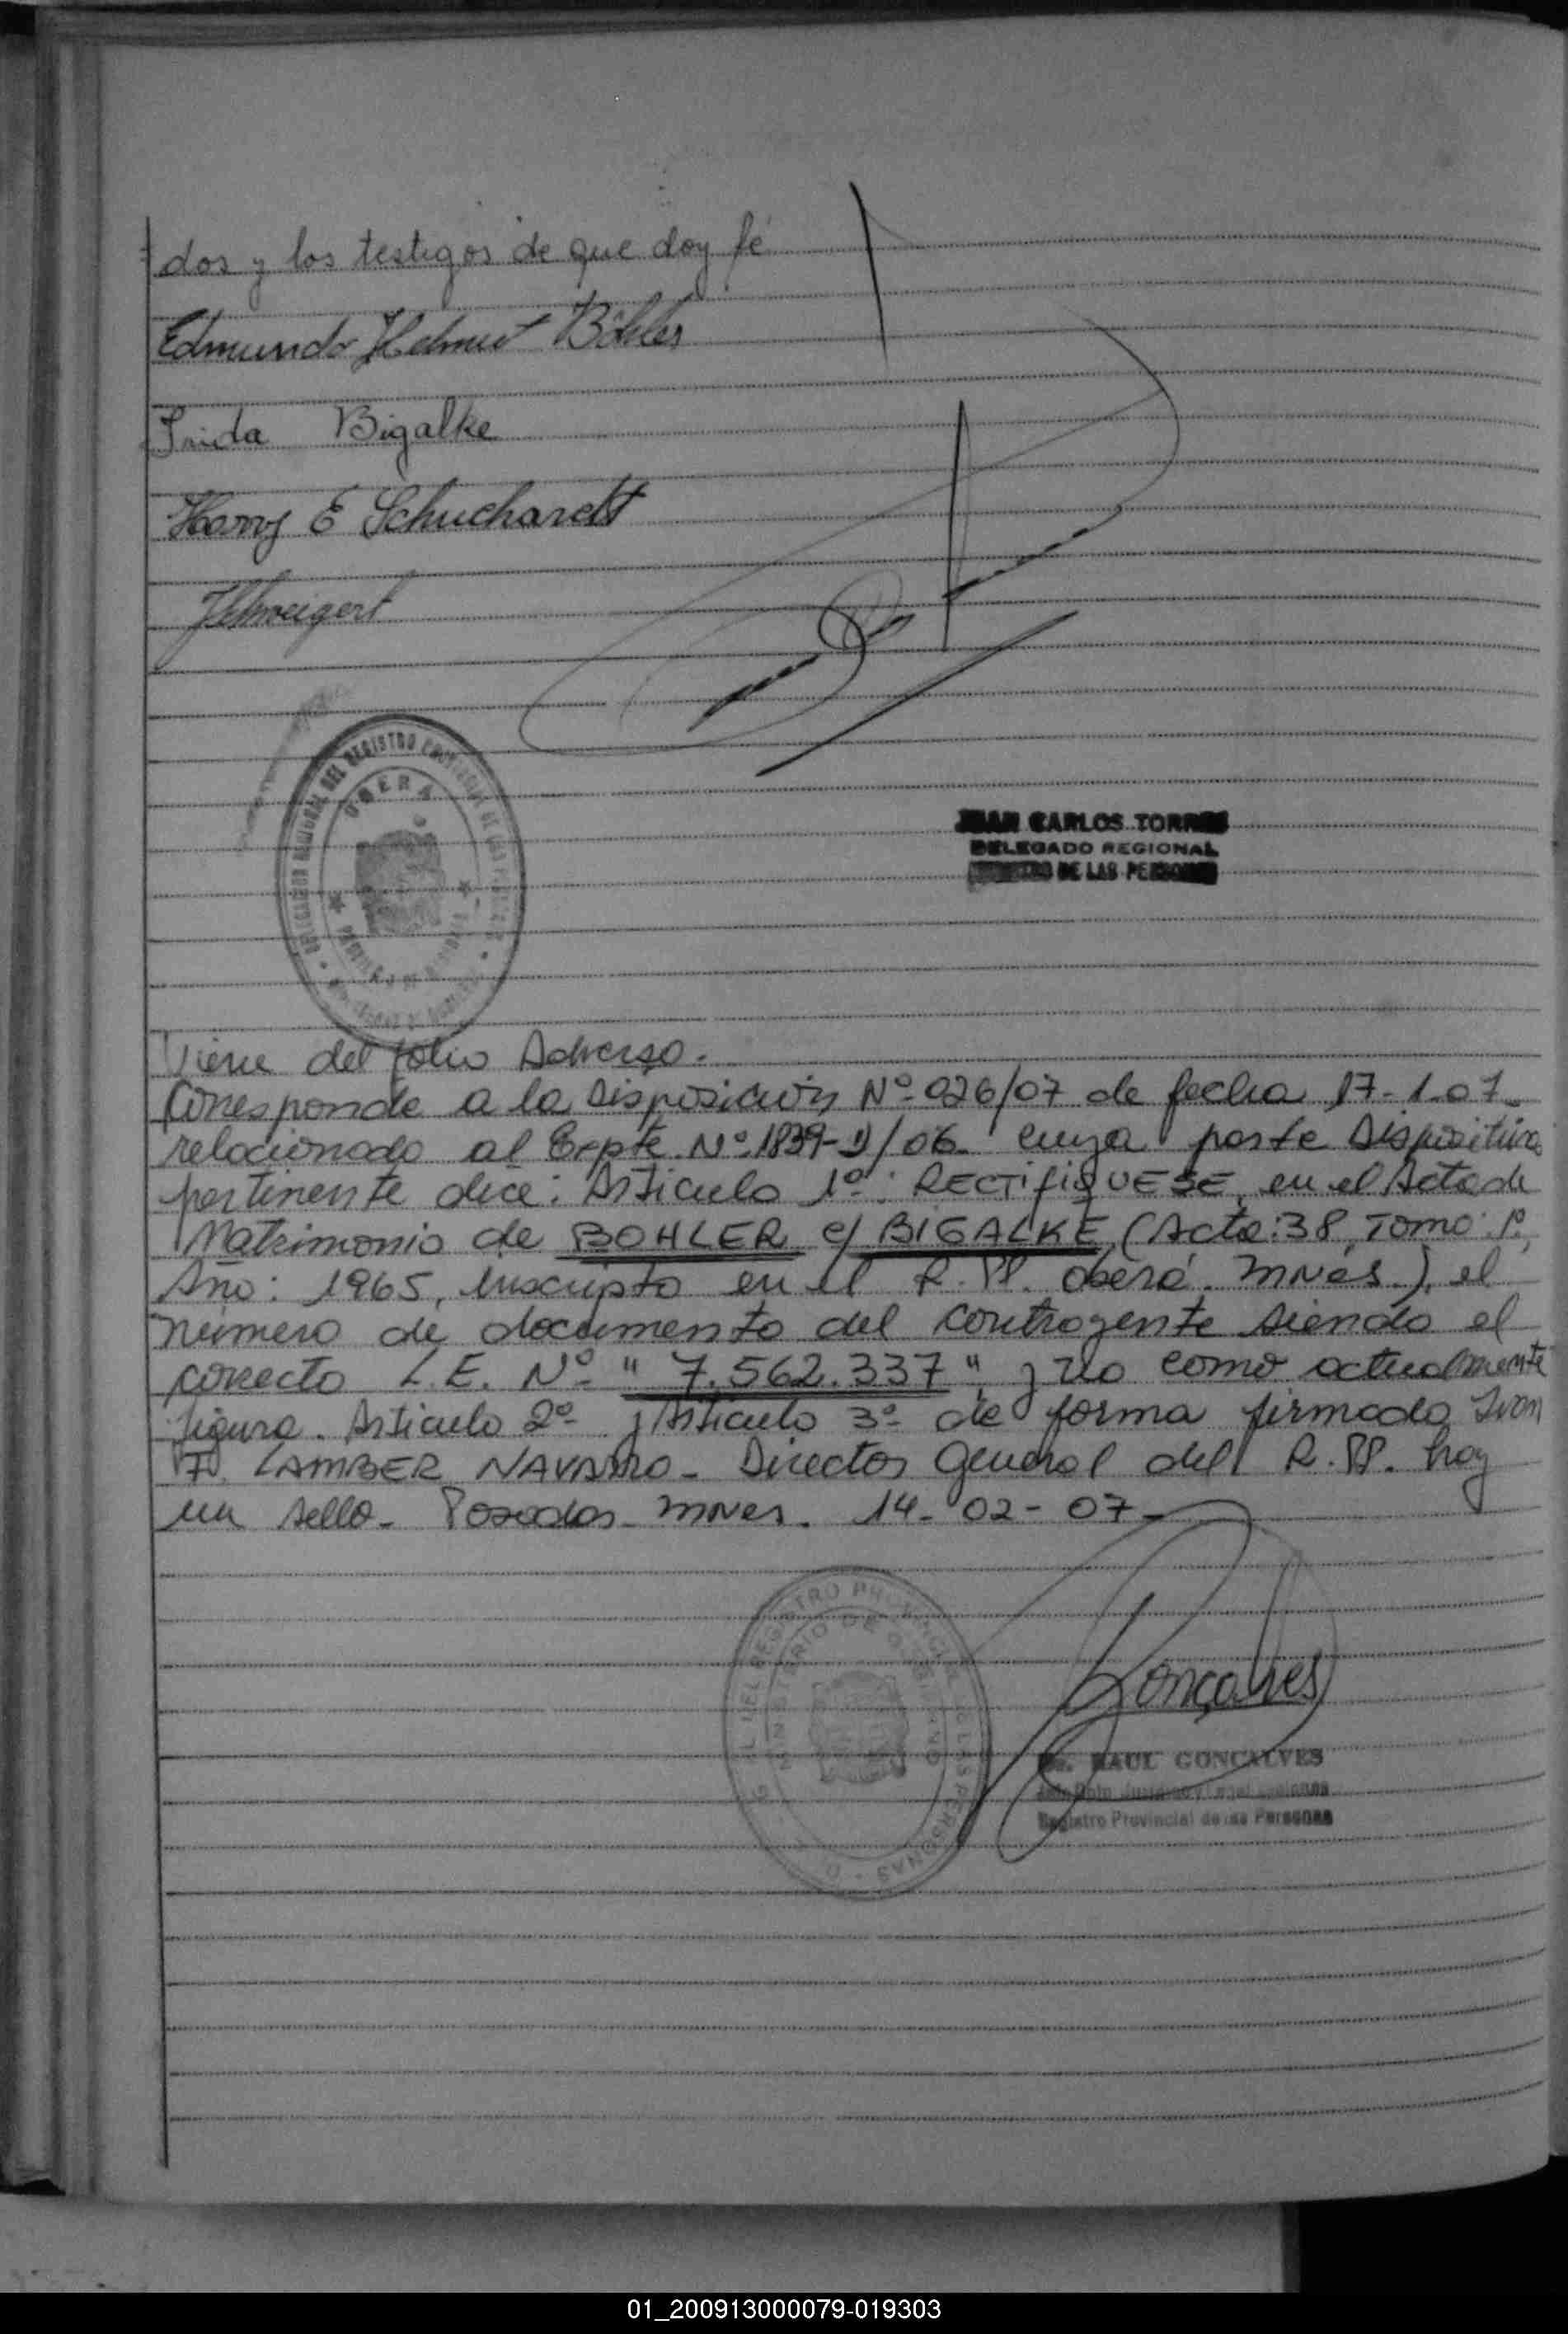 dos y los testigos de que doy fé
Edmundo Helmut Böhler
Frida Bigalke
Harry E Schuchardt
DELEGACION REGIONAL DEL REGISTRO PROVINCIAL DE LAS PERSONAS
OBERA
PROVINCIA DE MISIONES
JUAN CARLOS TORRES
DELEGADO REGIONAL
REGISTRO DE LAS PERSONAS
Viene del folio Adverso.
Corresponde a la Disposición Nº 026/07 de fecha 17-1-07-
relacionado al Expte Nº 1839- /06 cuya parte Dispositiva
pertinente dice: Articulo 1º: RECTIFIQUESE, en el Acta de
Matrimonio de BOHLER c/ BIGALKE, (Acta: 38, Tomo: 1º,
Año: 1965, Inscripto en el R.PP. Oberá. Mnes.), el
número de documento del contrayente siendo el
correcto L.E. Nº "7.562.337" y no como actualmente
figura. Articulo 2º y Articulo 3º de forma firmado Ivan
F. LAMBER NAVARRO- Director General del R.PP. hay
un sello- Posadas- Mnes. 14-02-07-
REGISTRO PROVINCIAL DE LAS PERSONAS
MINISTERIO DE GOBIERNO
Gonçalves
Dr. RAUL GONCALVES
Registro Provincial de las Personas
01_200913000079-019303